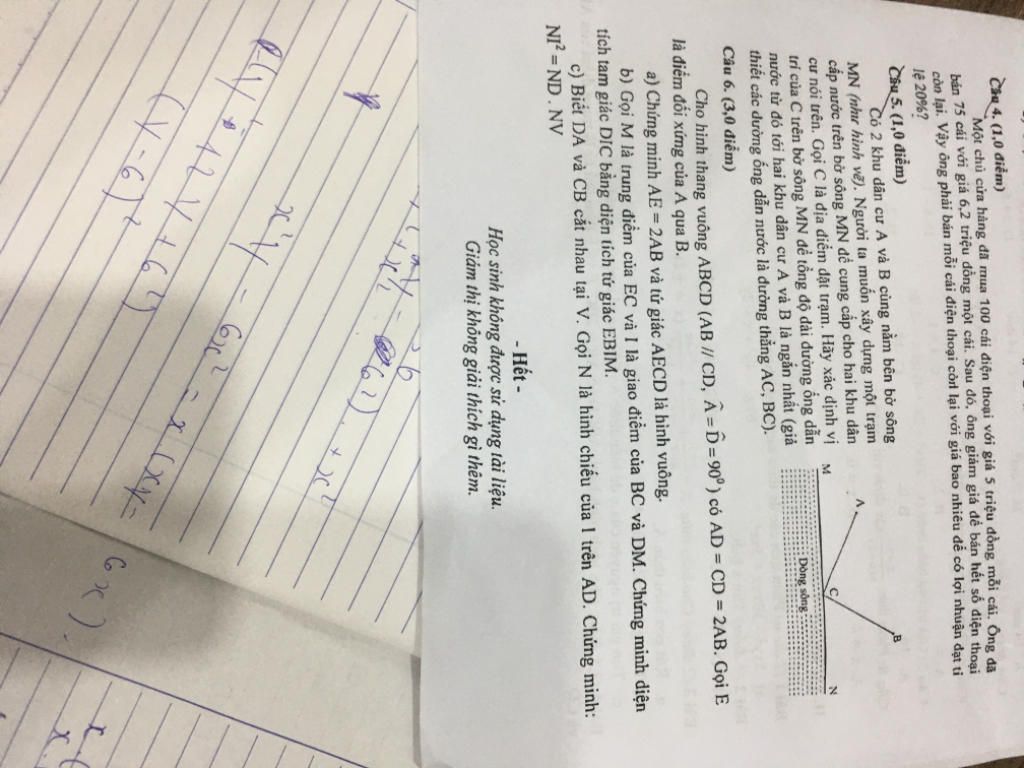 Câu 4. (1,0 điểm)
Một chủ cửa hàng đã mua 100 cái điện thoại với giá 5 triệu đồng mỗi cái. Ông đã
bán 75 cái với giá 6,2 triệu đồng một cái. Sau đó, ông giảm giá để bán hết số điện thoại
còn lại. Vậy ông phải bán mỗi cái điện thoại còn lại với giá bao nhiêu để có lợi nhuận đạt tỉ
lệ 20%?
Câu 5. (1,0 điểm)
Có 2 khu dân cư A và B cùng nằm bên bờ sông
MN (như hình vẽ). Người ta muốn xây dựng một trạm
cấp nước trên bờ sông MN để cung cấp cho hai khu dân
cư nói trên. Gọi C là địa điểm đặt trạm. Hãy xác định vị
trí của C trên bờ sông MN để tổng độ dài đường ống dẫn
nước từ đó tới hai khu dân cư A và B là ngắn nhất (giả
thiết các đường ống dẫn nước là đường thẳng AC, BC).
M
A
C
B
N
Dòng sông
Câu 6. (3,0 điểm)
Cho hình thang vuông ABCD (AB // CD, Â = D̂ = 90⁰) có AD = CD = 2AB. Gọi E
là điểm đối xứng của A qua B.
a) Chứng minh AE = 2AB và tứ giác AECD là hình vuông.
b) Gọi M là trung điểm của EC và I là giao điểm của BC và DM. Chứng minh diện
tích tam giác DIC bằng diện tích tứ giác EBIM.
c) Biết DA và CB cắt nhau tại V. Gọi N là hình chiếu của I trên AD. Chứng minh:
NI² = ND . NV
- Hết -
Học sinh không được sử dụng tài liệu.
Giám thị không giải thích gì thêm.
x²y - 6x² = x (xy - 6x)
+ 12y + 6²)
(y - 6)²